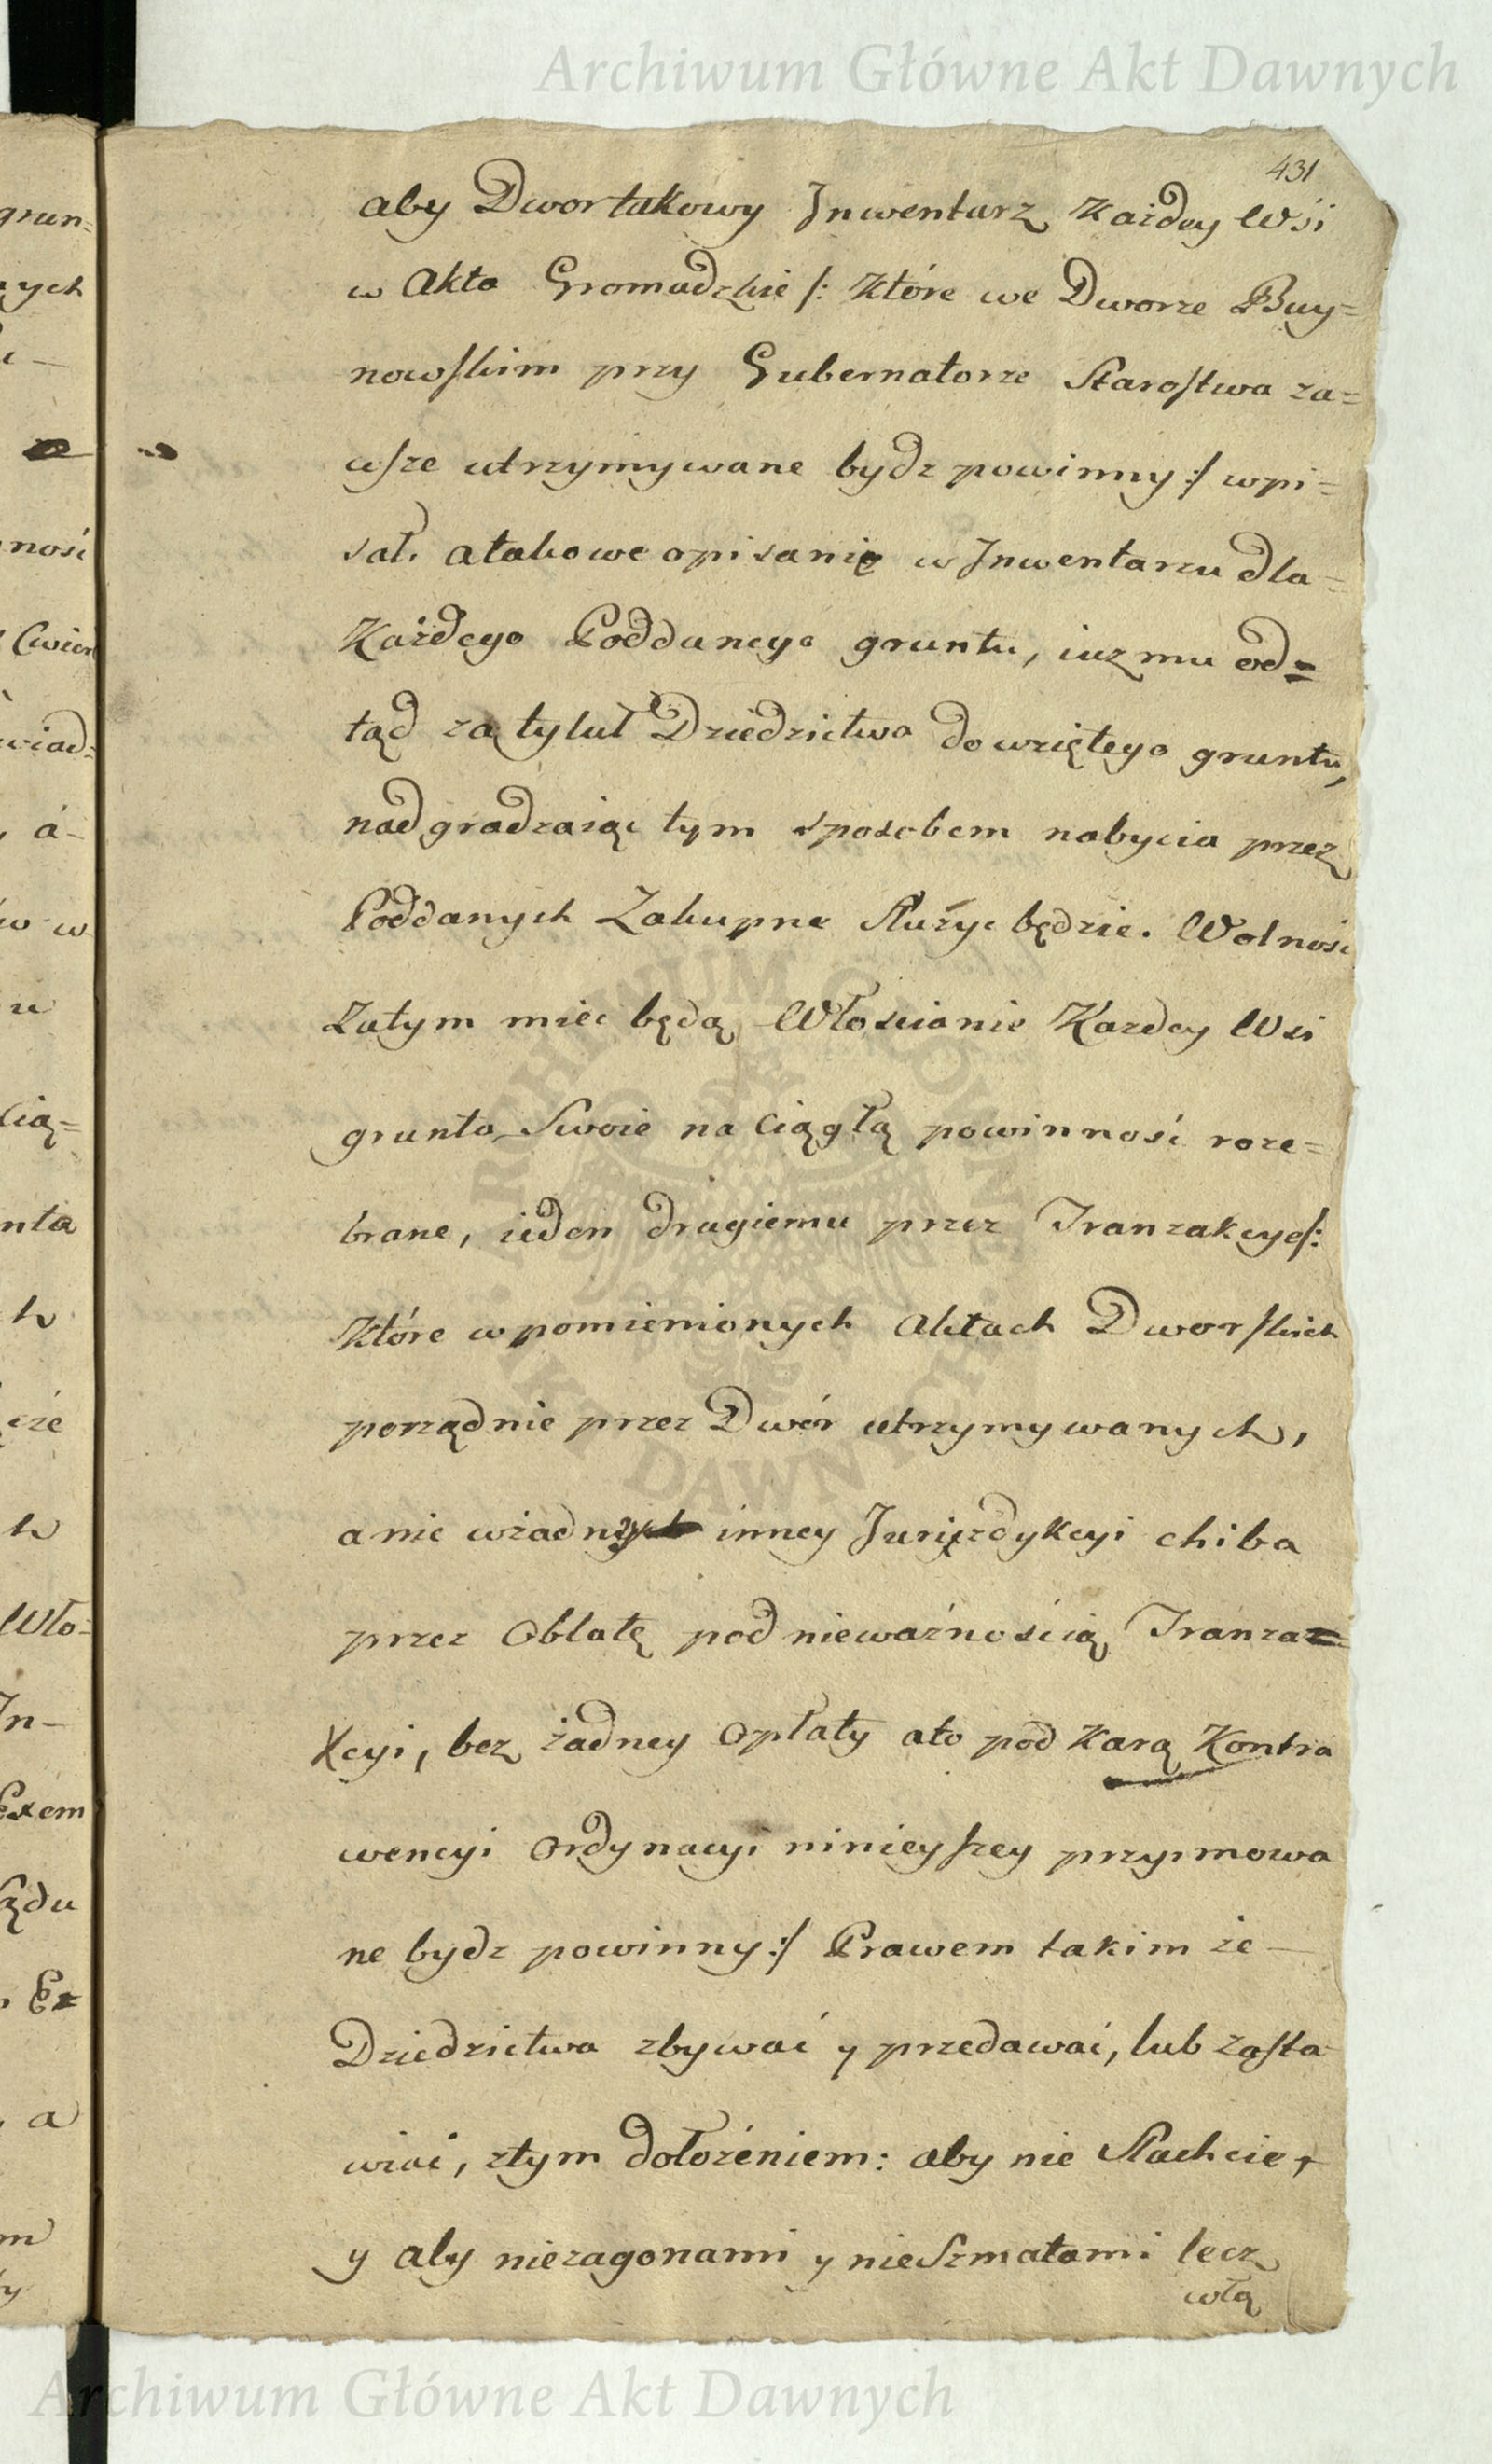 Archiwum Główne Akt Dawnych
431
aby Dwor takowy Inwentarz Każdey Wśi
w Akta Gromadzkie /: Które we Dworze Buy=
nowskim przy Gubernatorze Starostwa za=
wsze utrzymywane bydz powinny :/ wpi=
sał. a takowe opisanie w Inwentarzu dla
Każdego Poddanego gruntu, iuz mu od=
tąd za tytuł Dziedzictwa do wziętego gruntu,
nadgradzaiąc tym sposobem nabycia przez
Poddanych Zakupne Służyc będzie. Wolnosc
Zatym miec będą Włoscianie Kazdey Wsi
grunta Swoie na Ciągłą powinność roze=
brane, ieden drugiemu przez Tranzakcye /:
Które w pomienionych Aktach Dworskich
porządnie przez Dwór utrzymywanych,
a nie w żadney inney Juryzdykcyi chiba
przez Oblatę pod nieważnością Tranza=
kcyi, bez żadney Opłaty ato pod Karą Kontra
wencyi Ordynacyi ninieyszey przyimowa
ne bydz powinny :/ Prawem takim ze
Dziedzictwa zbywać y przedawać, lub zasta
wiać, z tym dołożeniem: aby nie Slachcie,
y aby nie zagonami y nie Szmatami lecz
wła
ARCHIWUM GŁÓWNE AKT DAWNYCH
grun=
ych
nosi
Cwier
wiad=
á
w w
u
Cią=
nta
h
cże
h
Wło=
In
Exem
ądu
Ex
a
m
y
Archiwum Główne Akt Dawnych